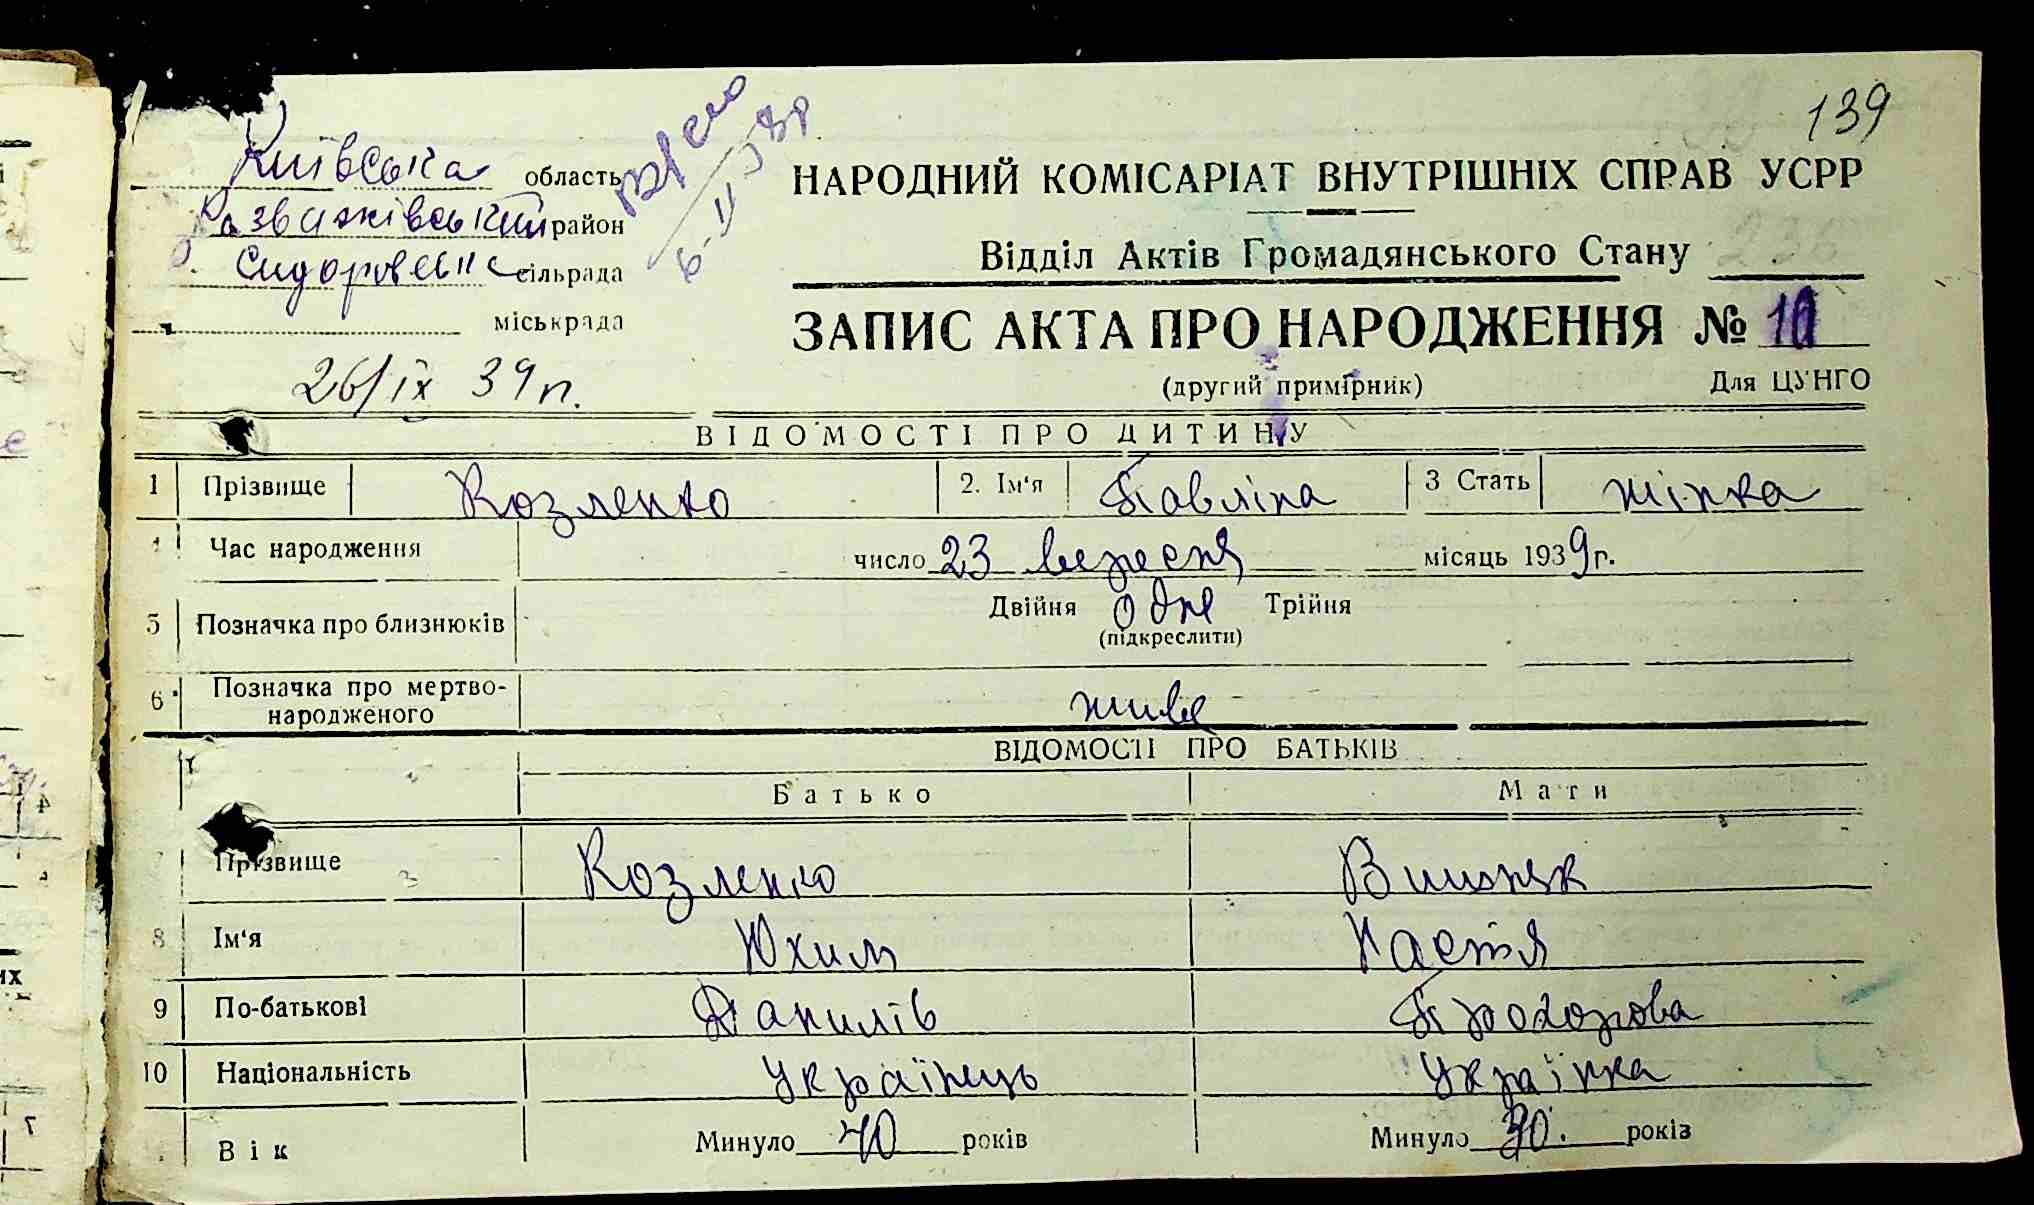 139
Київська область
Розважівський район
Сидоровська сільрада
міськрада
6-II
26/IX 39 р.
НАРОДНИЙ КОМІСАРІАТ ВНУТРІШНІХ СПРАВ УСРР
Відділ Актів Громадянського Стану
ЗАПИС АКТА ПРО НАРОДЖЕННЯ № 10
(другий примірник) Для ЦУНГО
ВІДОМОСТІ ПРО ДИТИНУ
1 Прізвище Козленко 2. Ім'я Павліна 3 Стать жінка
4 Час народження число 23 вересня місяць 1939 г.
5 Позначка про близнюків Двійня одне Трійня
(підкреслити)
6 Позначка про мертво-
народженого живе
ВІДОМОСТІ ПРО БАТЬКІВ
Батько Мати
7 Прізвище Козленко
8 Ім'я Юхим Настя
9 По-батькові Данилів Прохорова
10 Національність Українець Українка
Вік Минуло 40 років Минуло 30. років